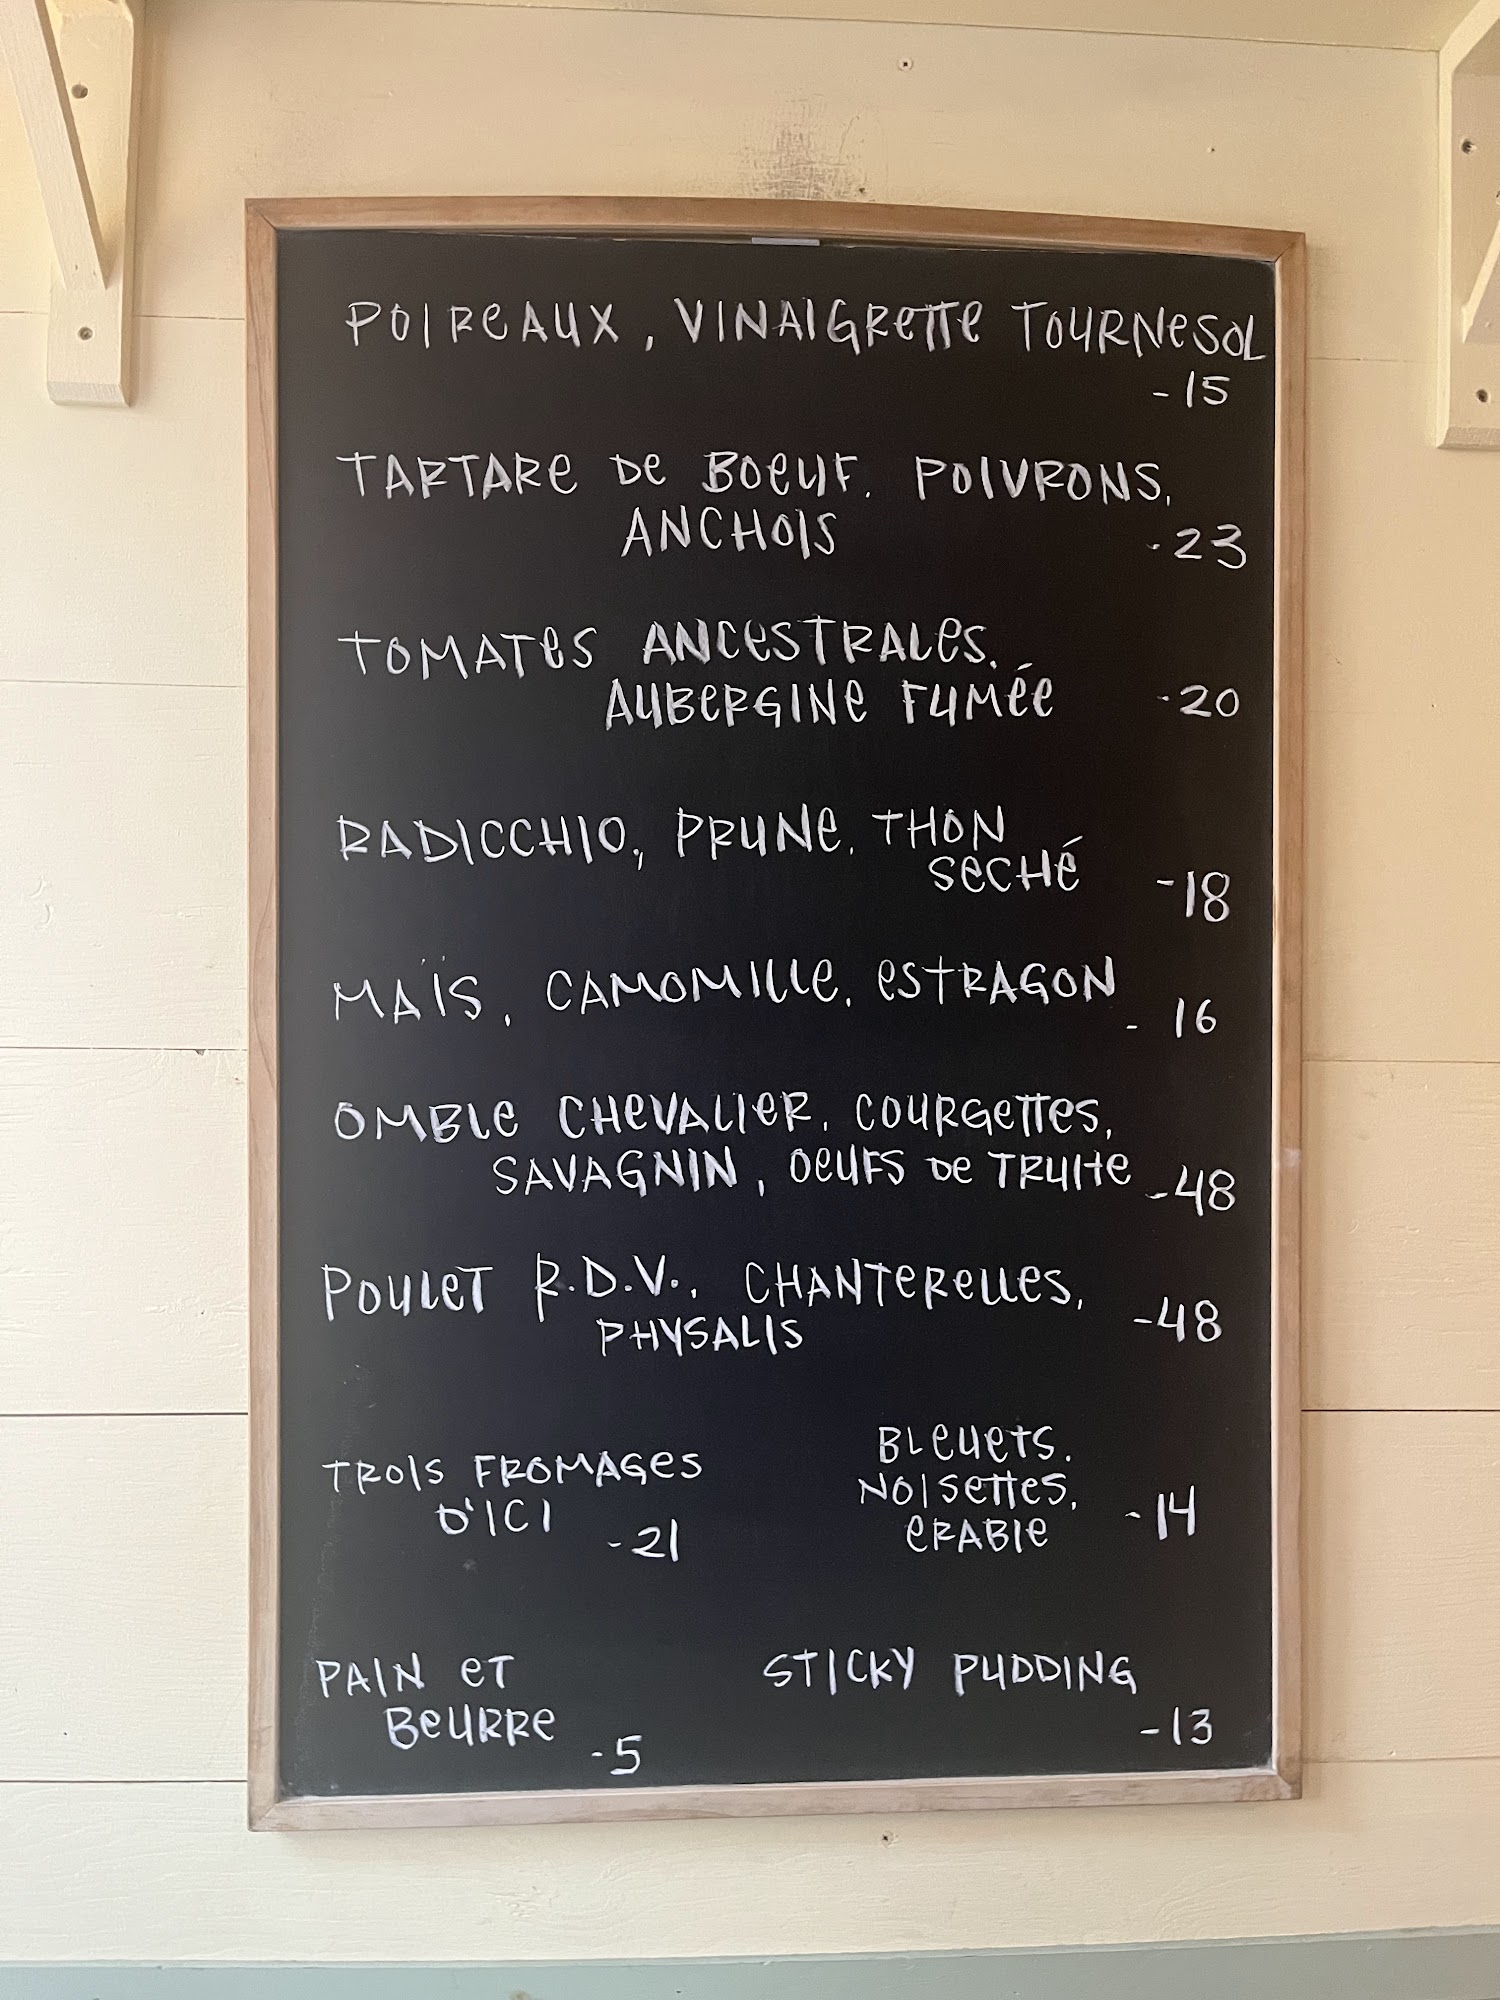 POIREAUX, VINAIGRETTE TOURNESOL
-15
TARTARE DE BOEUF, POIVRONS,
ANCHOIS -23
TOMATES ANCESTRALES,
AUBERGINE FUMÉE -20
RADICCHIO, PRUNE, THON
SECHÉ -18
MAÏS, CAMOMILLE, ESTRAGON
- 16
OMBLE CHEVALIER, COURGETTES,
SAVAGNIN, OEUFS DE TRUITE -48
POULET R.D.V., CHANTERELLES,
PHYSALIS -48
TROIS FROMAGES
D'ICI
-21
BLEUETS,
NOISETTES,
ERABLE -14
PAIN ET
BEURRE
-5
STICKY PUDDING
-13